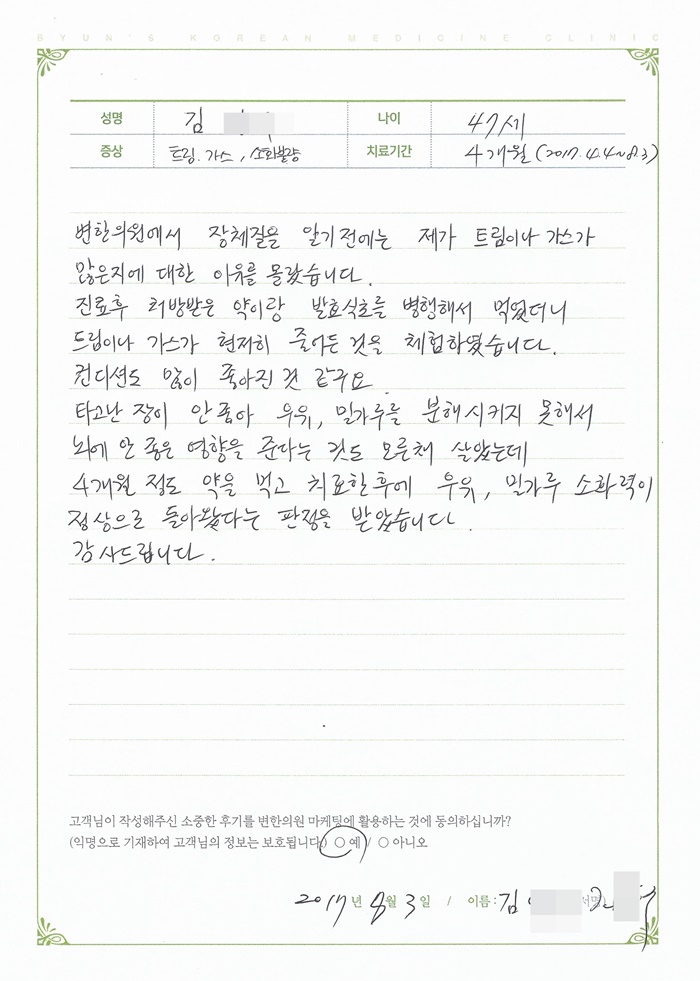 BYUN'S KOREAN MEDICINE CLINIC
성명 김 나이 47세
증상 트림. 가스, 소화불량 치료기간 4개월 (2017. 4.4~8.3)
변한의원에서 장체질을 알기전에는 제가 트림이나 가스가
많은지에 대한 이유를 몰랐습니다.
진료후 처방받은 약이랑 발효식초를 병행해서 먹었더니
트림이나 가스가 현저히 줄어든 것을 체험하였습니다.
컨디션도 많이 좋아진 것 같구요.
타고난 장이 안좋아 우유, 밀가루를 분해시키지 못해서
뇌에 안 좋은 영향을 준다는 것도 모른채 살았는데
4개월 정도 약을 먹고 치료한후에 우유, 밀가루 소화력이
정상으로 돌아왔다는 판정을 받았습니다.
감사드립니다.
고객님이 작성해주신 소중한 후기를 변한의원 마케팅에 활용하는 것에 동의하십니까?
(익명으로 기재하여 고객님의 정보는 보호됩니다) ○ 예 / ○ 아니오
2017 년 8월 3일 / 이름 : 김 (서명)